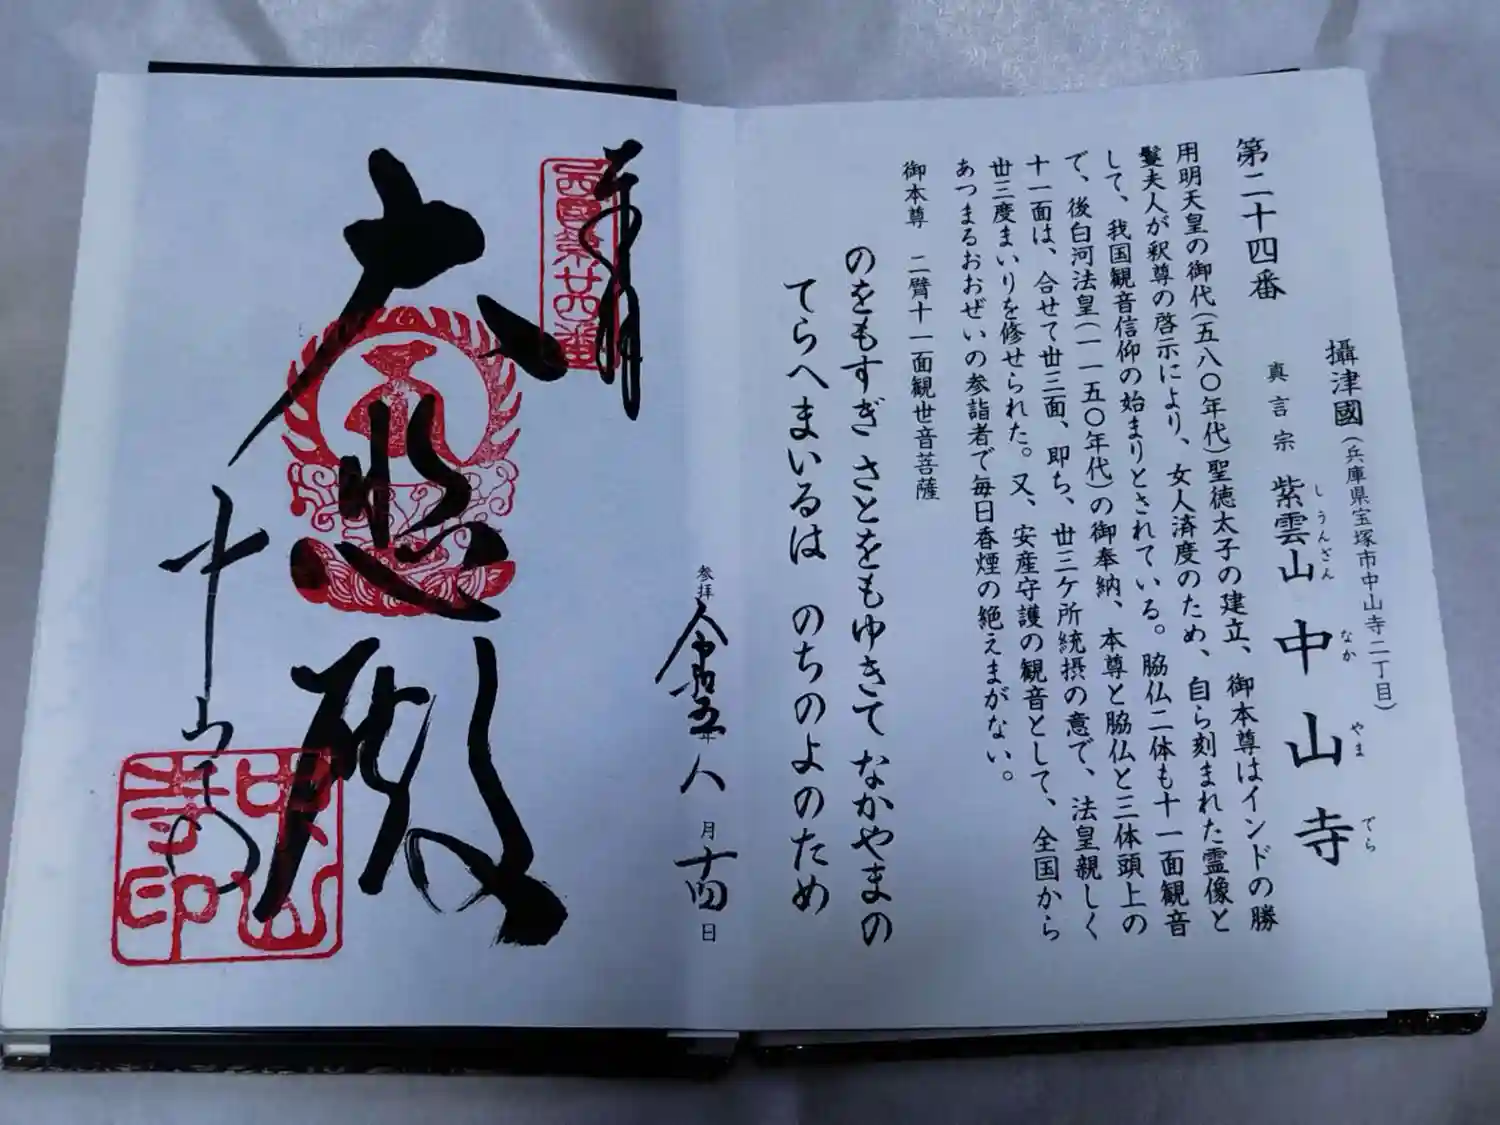 攝津國(兵庫県宝塚市中山寺二丁目)
第二十四番 真言宗 紫雲山 中山寺
しうんざん なか やま でら
用明天皇の御代(五八〇年代)聖徳太子の建立、御本尊はインドの勝
鬘夫人が釈尊の啓示により、女人済度のため、自ら刻まれた霊像と
して、我国観音信仰の始まりとされている。脇仏二体も十一面観音
で、後白河法皇(一一五〇年代)の御奉納、本尊と脇仏と三体頭上の
十一面は、合せて丗三面、即ち、丗三ケ所統摂の意で、法皇親しく
丗三度まいりを修せられた。又、安産守護の観音として、全国から
あつまるおおぜいの参詣者で毎日香煙の絶えまがない。
御本尊 二臂十一面観世音菩薩
のをもすぎ さとをもゆきて なかやまの
てらへまいるは のちのよのため
参拝 令和五年 八月 十四日
奉拝
西國第廿四番
大悲殿
中山寺
中山寺印